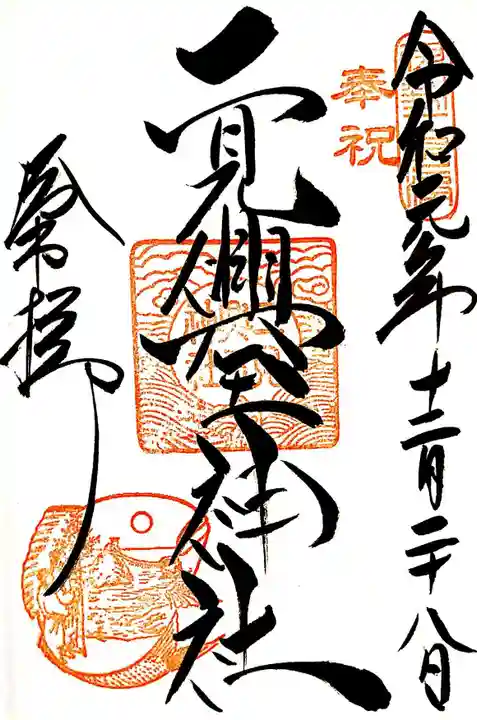 奉祝
令和元年十二月二十八日
二見興玉神社